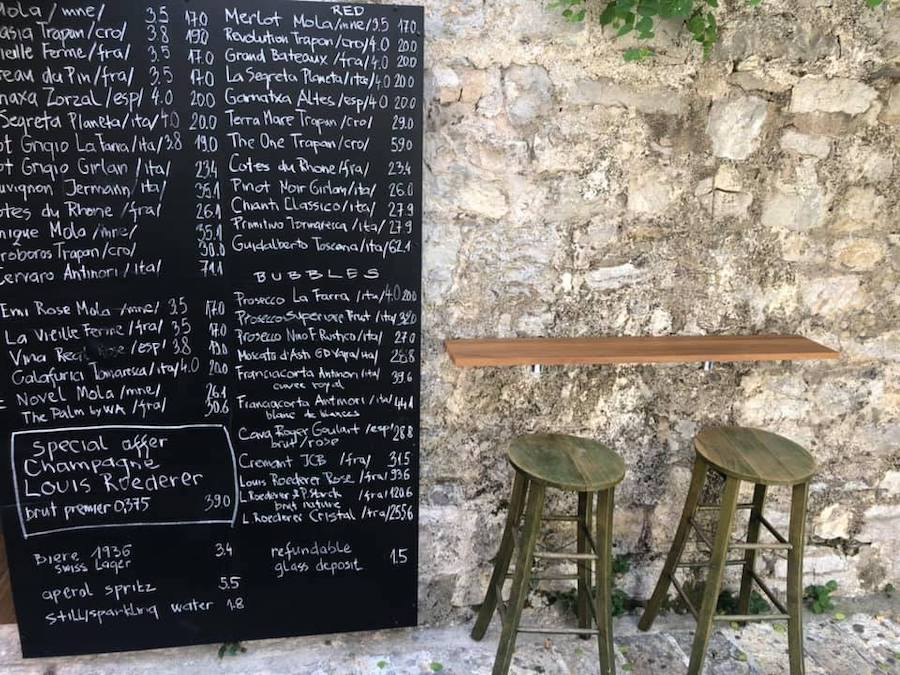 Mola /mne/ 3.5 17.0
Trapan /cro/ 3.8 19.0
Vieille Ferme /fra/ 3.5 17.0
du Pin /fra/ 3.5 17.0
Zorzal /esp/ 4.0 20.0
Segreta Planeta /ita/ 4.0 20.0
Grigio La Tana /ita/ 3.8 19.0
Grigio Girlan /ita/ 23.4
Jermann /ita/ 35.1
du Rhone /fra/ 26.1
Mola /mne/ 35.1
Trapan /cro/ 30.0
Cervaro Antinori /ita/ 71.1
Emi Rose Mola /mne/ 3.5 17.0
La Vieille Ferme /fra/ 3.5 17.0
Vina Real Rose /esp/ 3.8 19.0
Calafuria Tomaresca /ita/ 4.0 20.0
Novel Mola /mne/ 26.1
The Palm by WA /fra/ 30.6
special offer
Champagne
Louis Roederer
brut premier 0,375 39.0
Biere 1936 3.4
swiss Lager
aperol spritz 5.5
still/sparkling water 1.8
RED
Merlot Mola /mne/ 3.5 17.0
Revolution Trapan /cro/ 4.0 20.0
Grand Bateaux /fra/ 4.0 20.0
La Segreta Planeta /ita/ 4.0 20.0
Garnatxa Altes /esp/ 4.0 20.0
Terra Mare Trapan /cro/ 29.0
The One Trapan /cro/ 59.0
Cotes du Rhone /fra/ 23.4
Pinot Noir Girlan /ita/ 26.0
Chianti Classico /ita/ 27.9
Primitivo Tormaresca /ita/ 27.9
Guidalberto Toscana /ita/ 62.1
BUBBLES
Prosecco La Farra /ita/ 4.0 20.0
Prosecco Superiore Frut /ita/
Prosecco Nino F Rustico /ita/ 27.0
Moscato d'Asti GD Vajra /ita/
Franciacorta Antinori /ita/ 39.6
cuvee royal
Franciacorta Antinori /ita/ 44.1
blanc de blancs
Cava Roger Goulart /esp/ 28.8
brut/rose
Cremant JCB /fra/ 31.5
Louis Roederer Rose /fra/ 93.6
L. Roederer & P. Starck /fra/ 120.6
brut nature
L. Roederer Cristal /fra/ 255.6
refundable
glass deposit 1.5